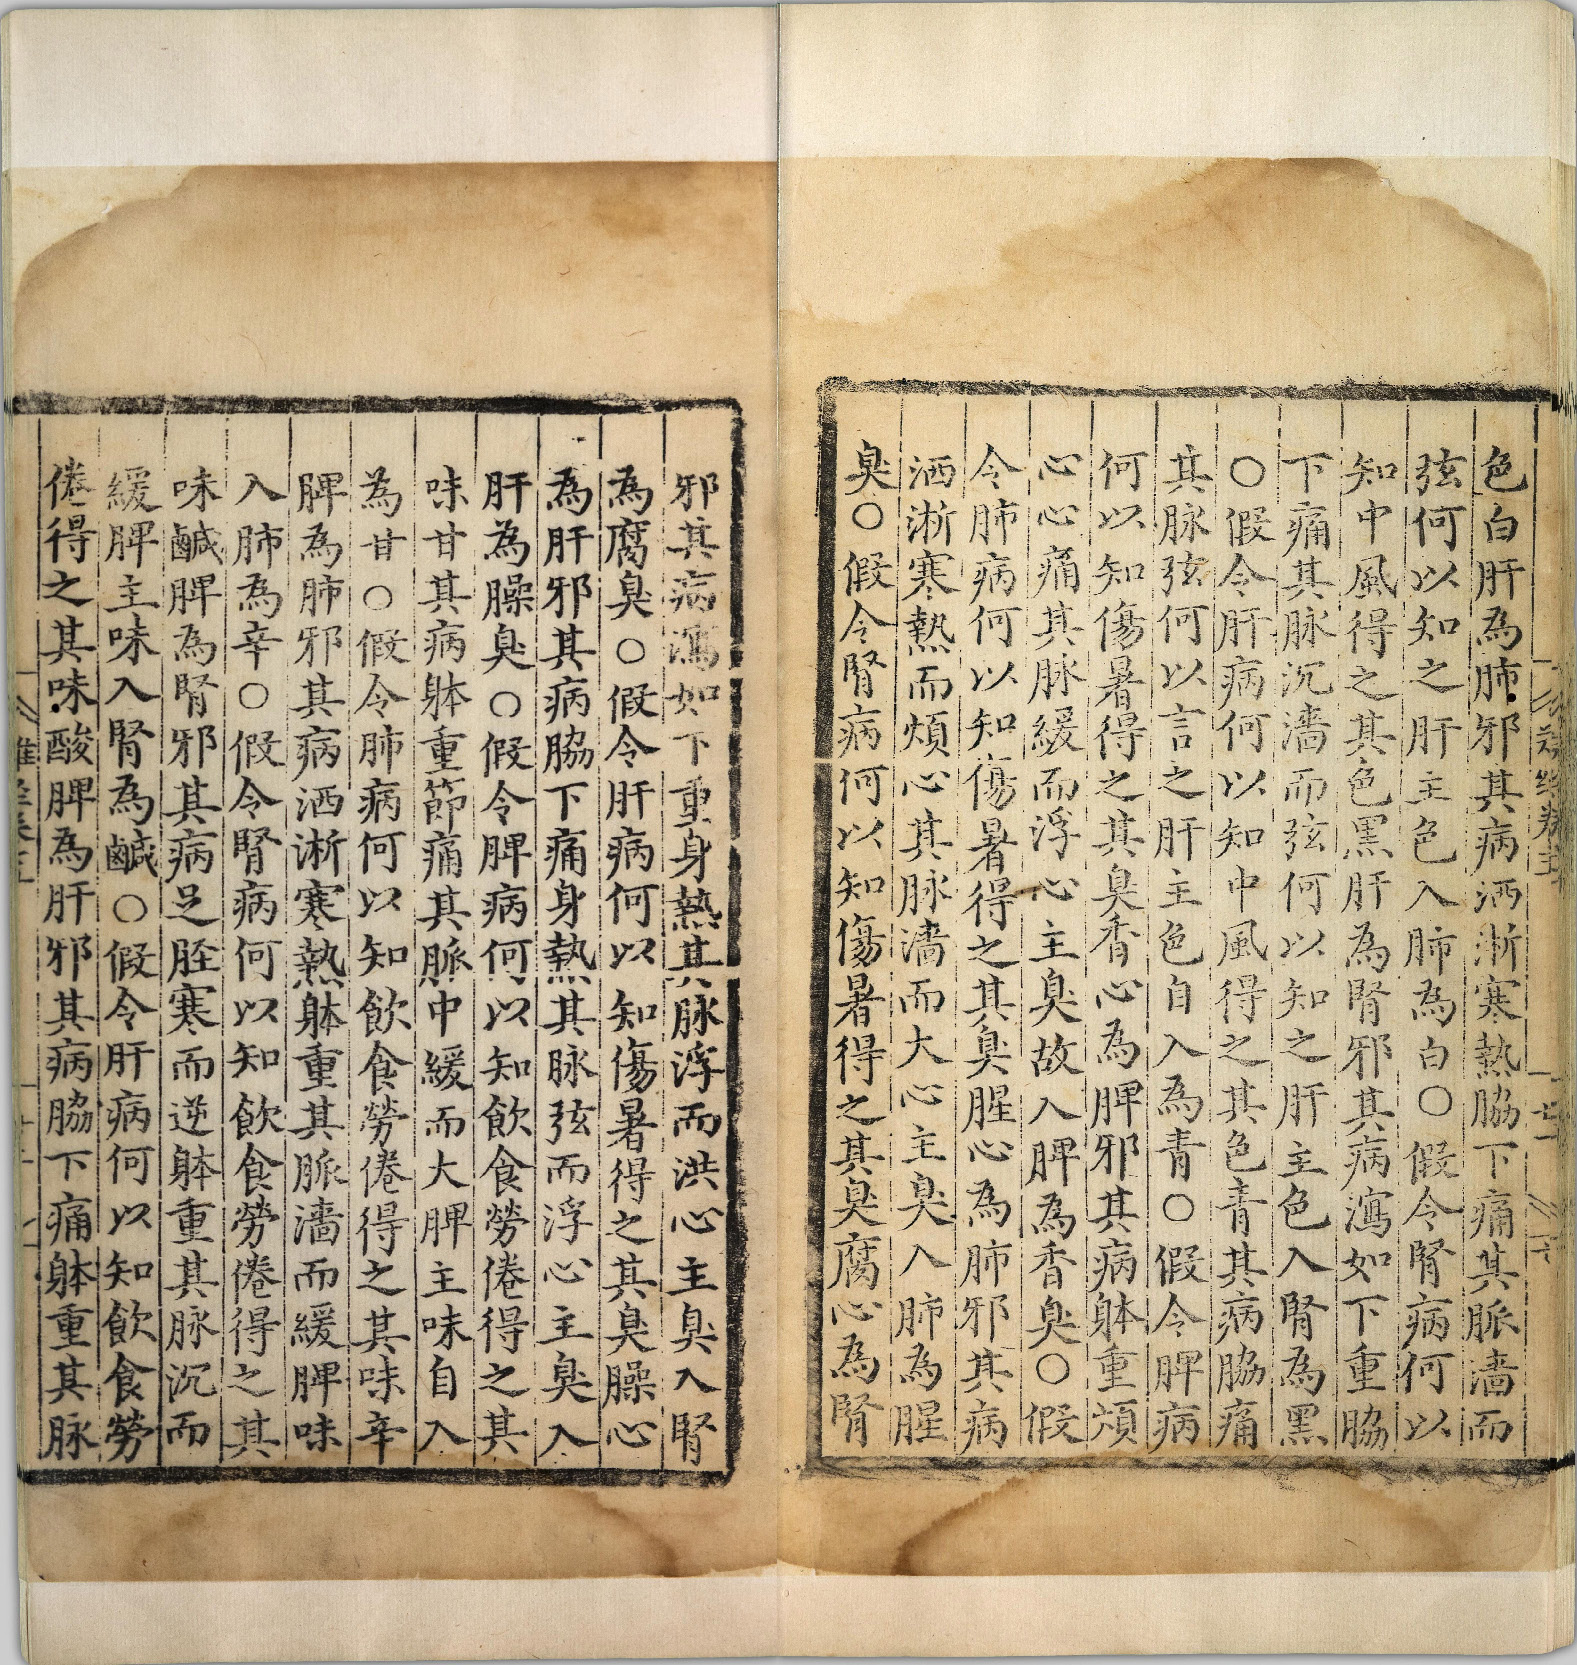 色白肝為肺邪其病洒淅寒熱脇下痛其脈濇而
弦何以知之肝主色入肺為白○假令腎病何以
知中風得之其色黑肝為腎邪其病瀉如下重脇
下痛其脉沉濇而弦何以知之肝主色入腎為黑
○假令肝病何以知中風得之其色青其病脇痛
其脉弦何以言之肝主色自入為青○假令脾病
何以知傷暑得之其臭香心為脾邪其病躰重煩
心心痛其脉緩而浮心主臭故入脾為香臭○假
令肺病何以知傷暑得之其臭腥心為肺邪其病
洒淅寒熱而煩心其脉濇而大心主臭入肺為腥
臭○假令腎病何以知傷暑得之其臭腐心為腎
邪其病瀉如下重身熱其脉浮而洪心主臭入腎
為腐臭○假令肝病何以知傷暑得之其臭臊心
為肝邪其病脇下痛身熱其脉弦而浮心主臭入
肝為臊臭○假令脾病何以知飲食勞倦得之其
味甘其病躰重節痛其脈中緩而大脾主味自入
為甘○假令肺病何以知飲食勞倦得之其味辛
脾為肺邪其病洒淅寒熱躰重其脈濇而緩脾味
入肺為辛○假令腎病何以知飲食勞倦得之其
味鹹脾為腎邪其病足胫寒而逆躰重其脉沉而
緩脾主味入腎為鹹○假令肝病何以知飲食勞
倦得之其味酸脾為肝邪其病脇下痛躰重其脉